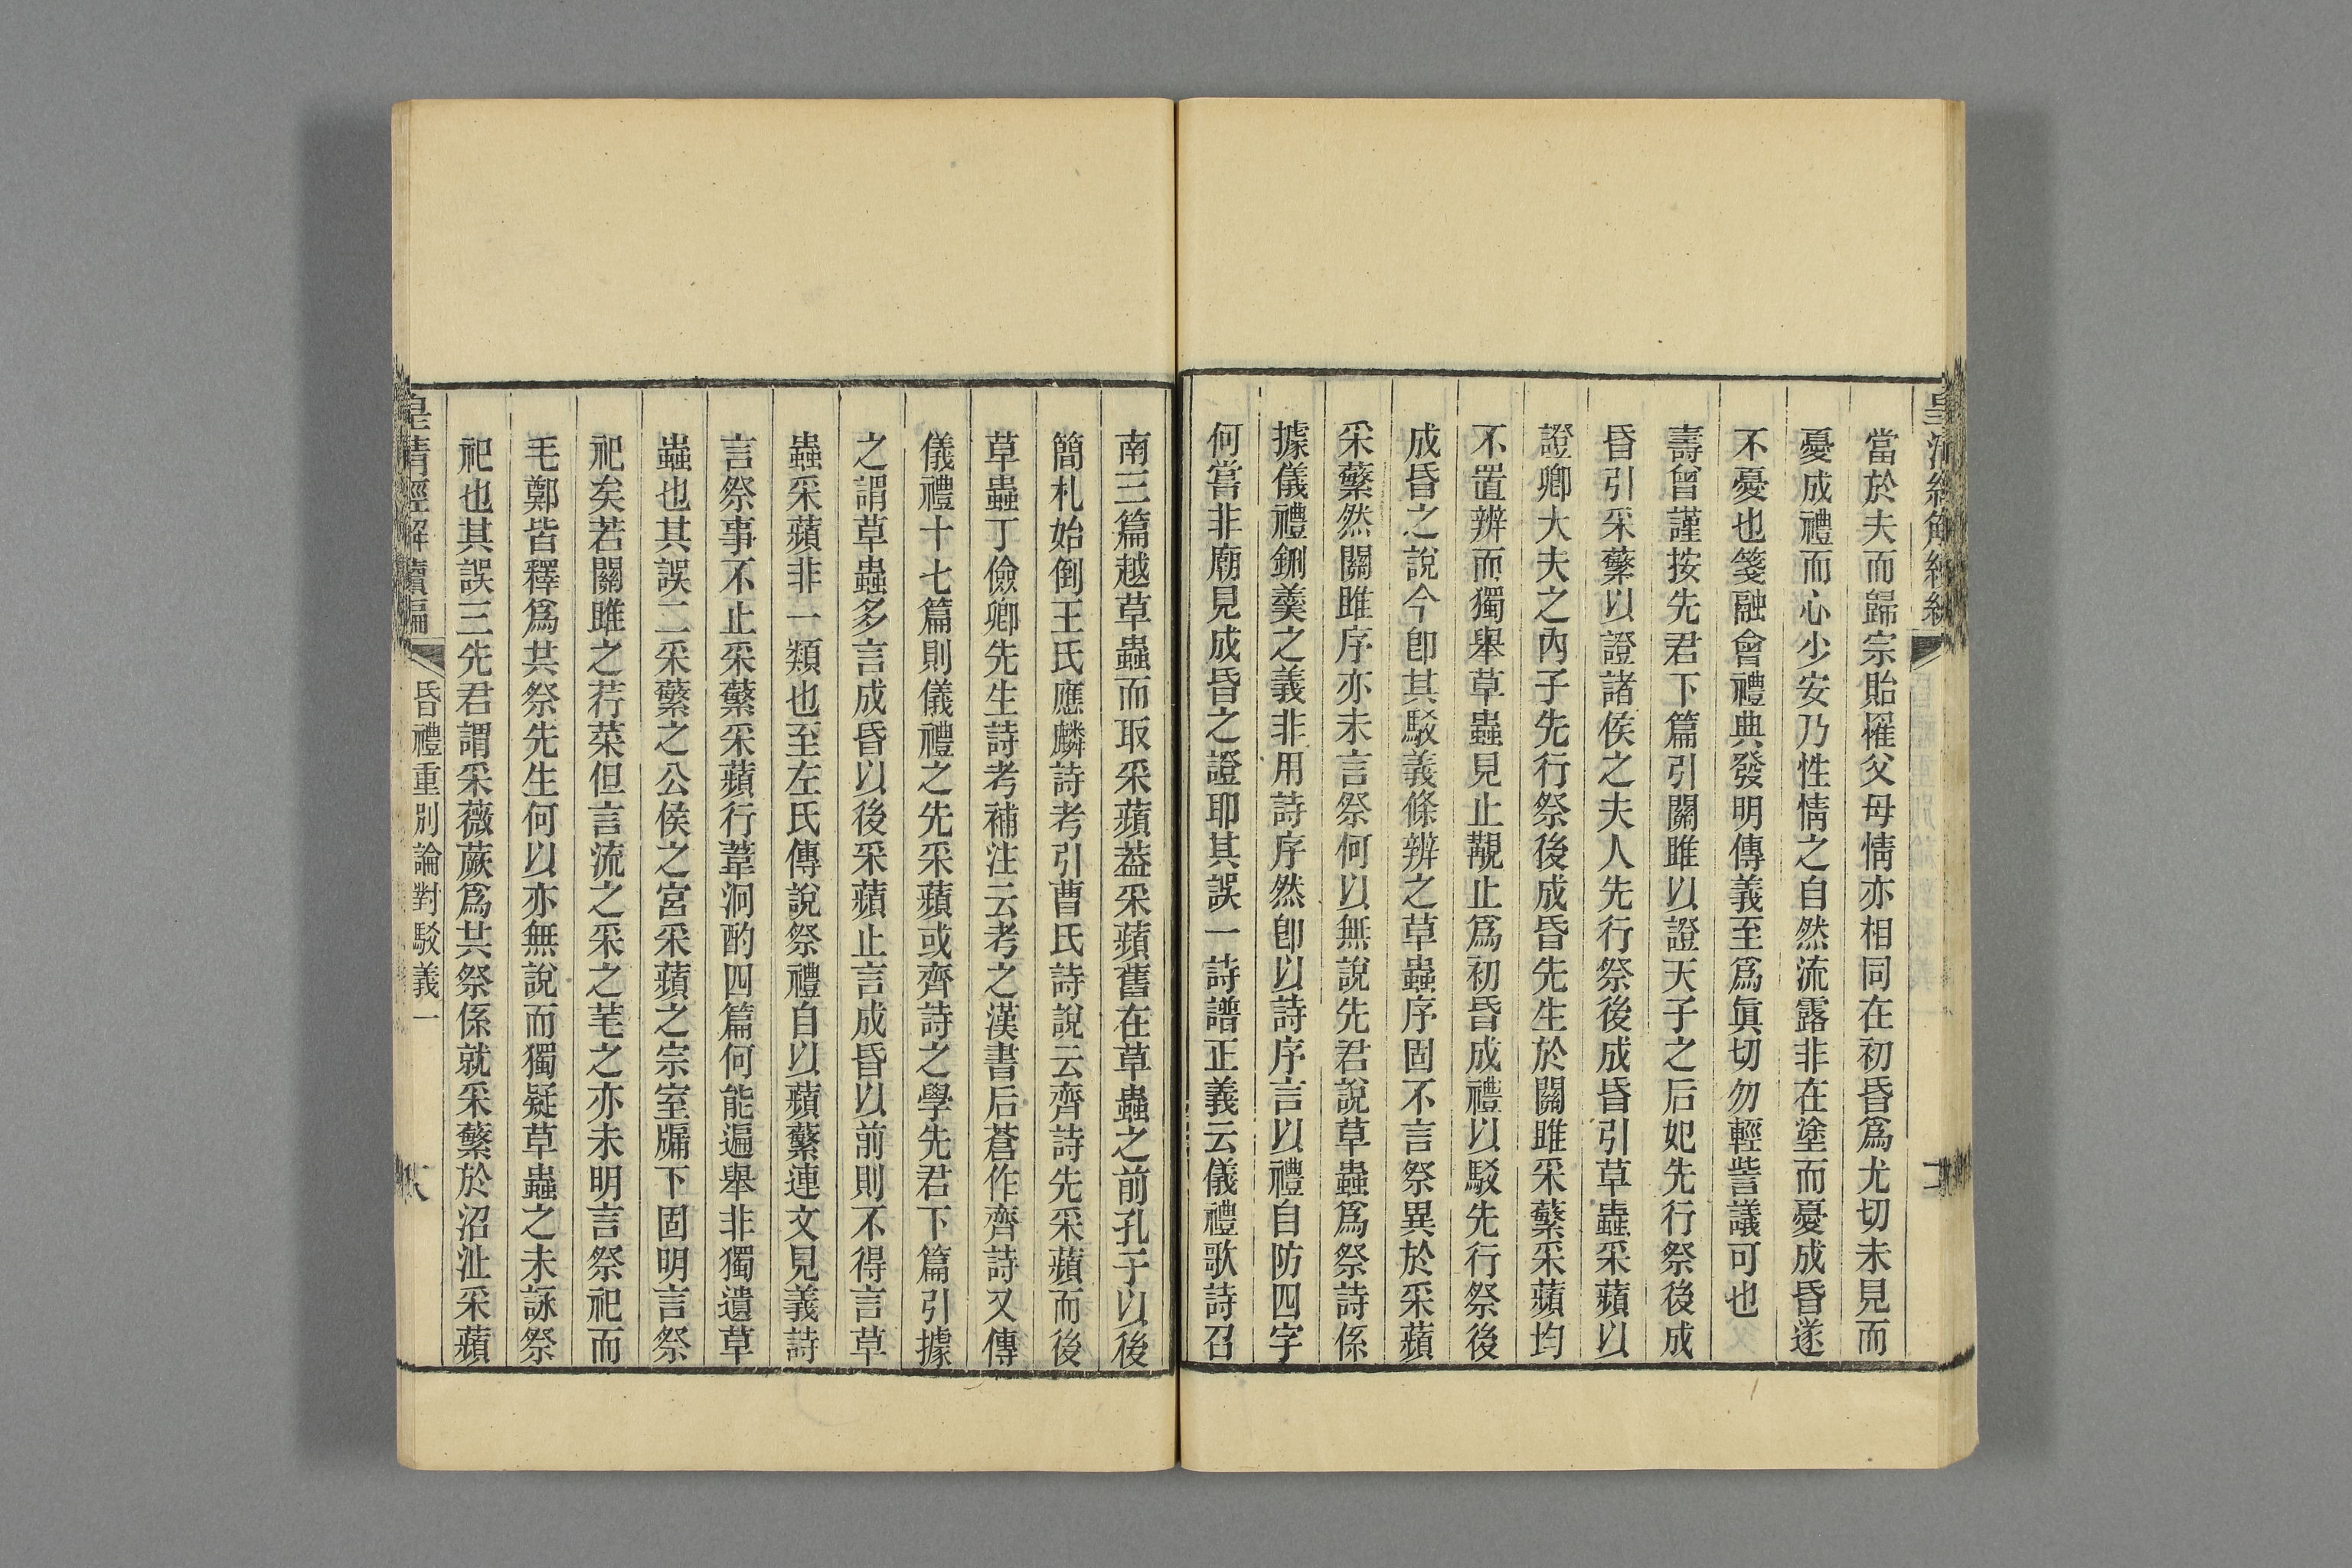 當於夫而歸宗貽罹父母情亦相同在初昏爲尤切未見而
憂成禮而心少安乃性情之自然流露非在塗而憂成昏遂
不憂也箋融會禮典發明傳義至爲眞切勿輕訾議可也
壽曾謹按先君下篇引關雎以證天子之后妃先行祭後成
昏引采蘩以證諸侯之夫人先行祭後成昏引草蟲采蘋以
證卿大夫之內子先行祭後成昏先生於關雎采蘩采蘋均
不置辨而獨舉草蟲見止覯止爲初昏成禮以駁先行祭後
成昏之說今卽其駁義條辨之草蟲序固不言祭異於采蘋
采蘩然關雎序亦未言祭何以無說先君說草蟲爲祭詩係
據儀禮鉶羹之義非用詩序然卽以詩序言以禮自防四字
何嘗非廟見成昏之證耶其誤一詩譜正義云儀禮歌詩召
南三篇越草蟲而取采蘋葢采蘋舊在草蟲之前孔子以後
簡札始倒王氏應麟詩考引曹氏詩說云齊詩先采蘋而後
草蟲丁儉卿先生詩考補注云考之漢書后蒼作齊詩又傳
儀禮十七篇則儀禮之先采蘋或齊詩之學先君下篇引據
之謂草蟲多言成昏以後采蘋止言成昏以前則不得言草
蟲采蘋非一類也至左氏傳說祭禮自以蘋蘩連文見義詩
言祭事不止采蘩采蘋行葦泂酌四篇何能遍舉非獨遺草
蟲也其誤二采蘩之公侯之宮采蘋之宗室牖下固明言祭
祀矣若關雎之荇菜但言流之采之芼之亦未明言祭祀而
毛鄭皆釋爲共祭先生何以亦無說而獨疑草蟲之未詠祭
祀也其誤三先君謂采薇蕨爲共祭係就采蘩於沼沚采蘋
皇清經解續編
昏禮重別論對駁義一